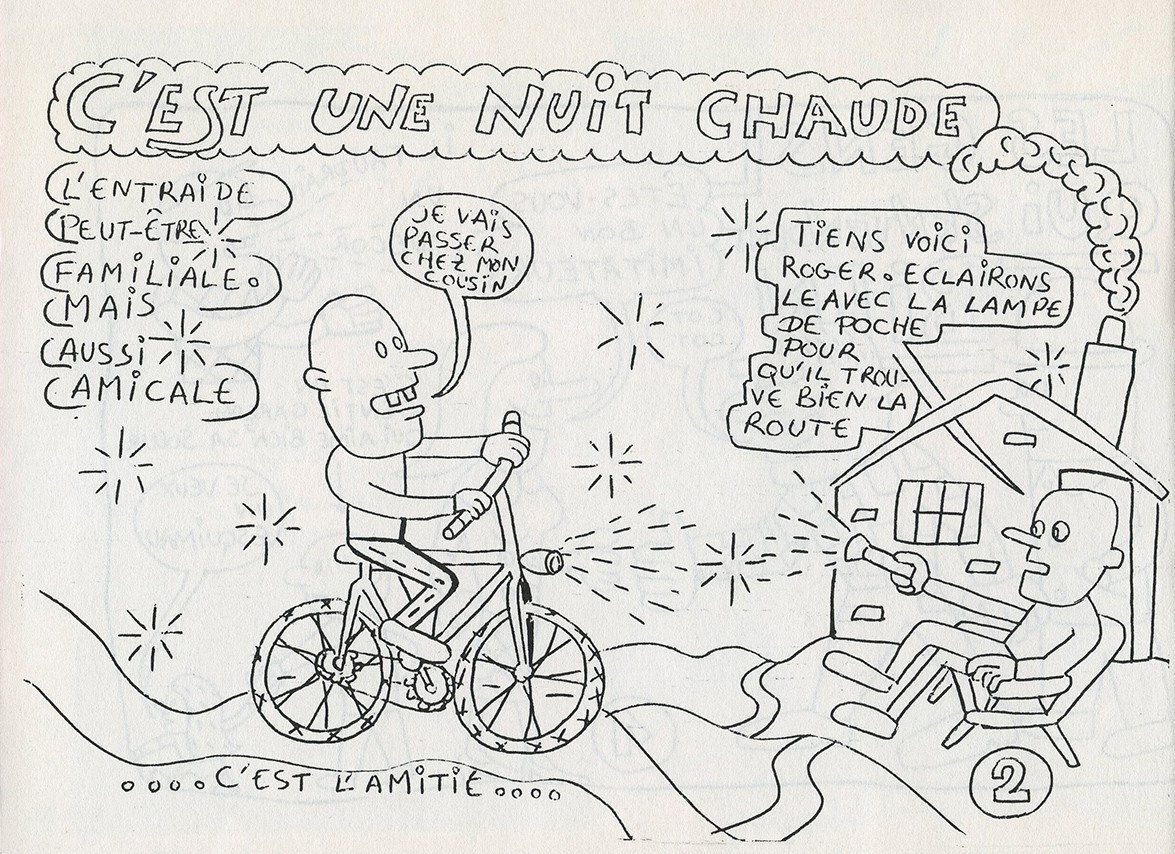 C'EST UNE NUIT CHAUDE
L'ENTRAIDE
PEUT-ÊTRE
FAMILIALE.
MAIS
AUSSI
AMICALE
JE VAIS
PASSER
CHEZ MON
COUSIN
TIENS VOICI
ROGER. ECLAIRONS
LE AVEC LA LAMPE
DE POCHE
POUR
QU'IL TROU-
VE BIEN LA
ROUTE
....C'EST L'AMITIÉ....
2